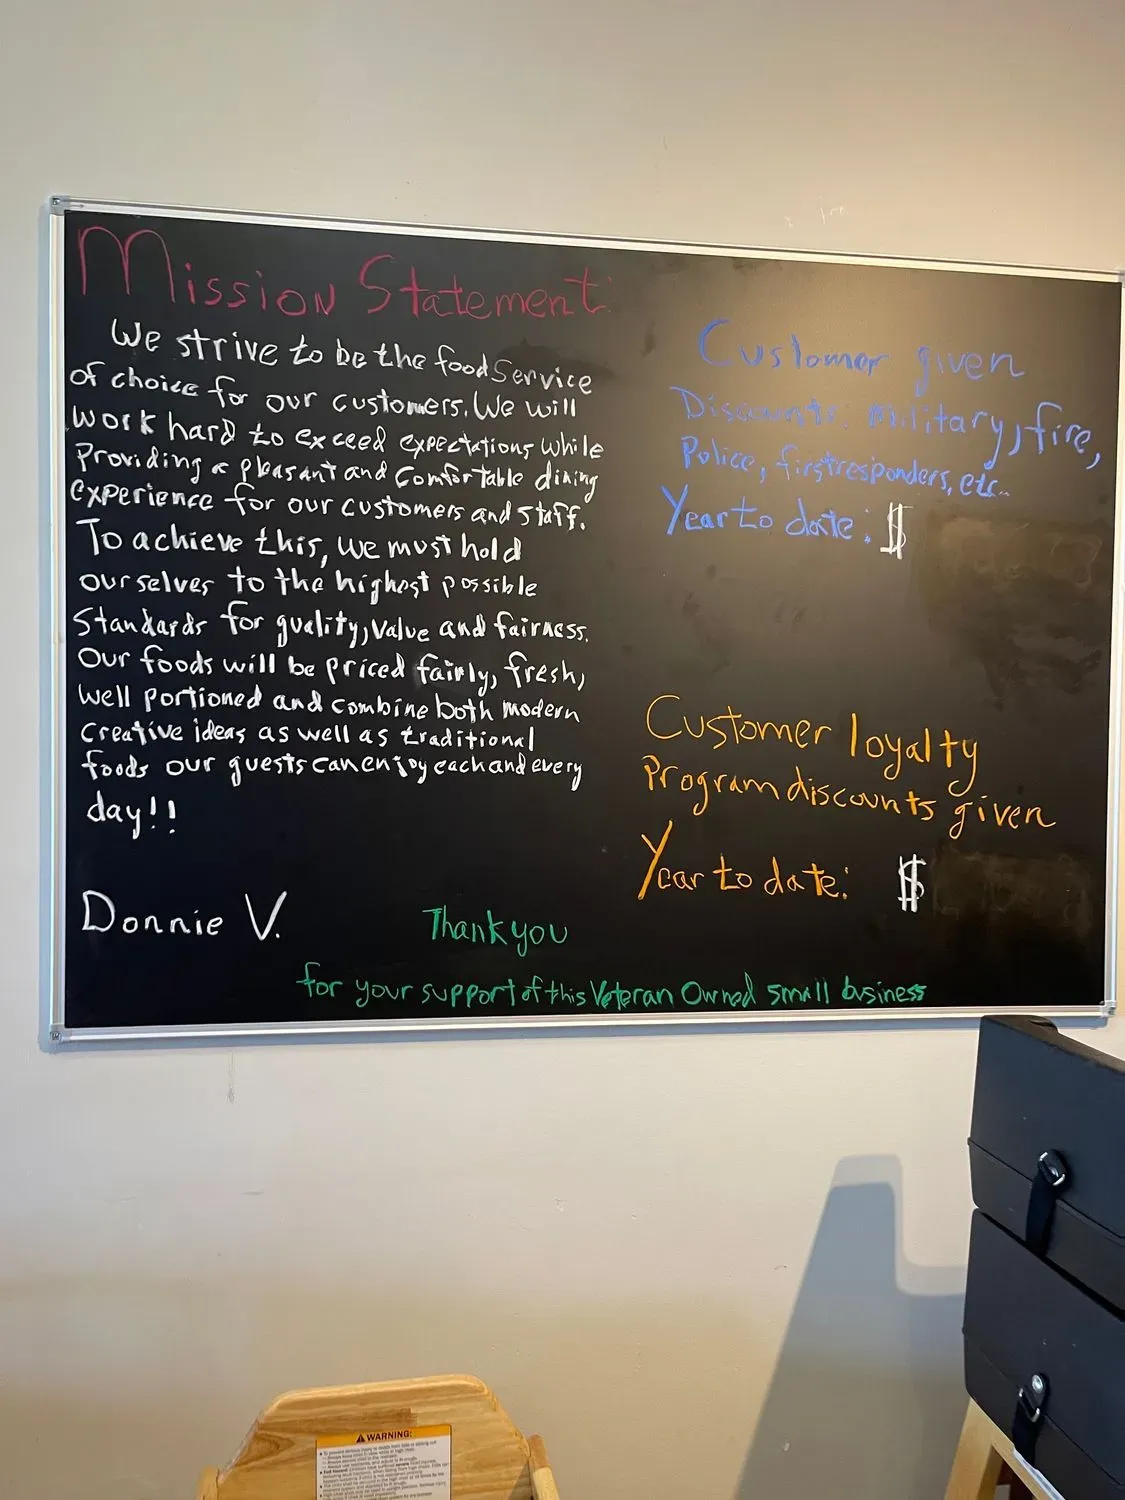 Mission Statement:
We strive to be the food Service
of choice for our customers. We will
work hard to exceed expectations while
Providing a pleasant and comfortable dining
experience for our customers and staff.
To achieve this, we must hold
ourselves to the highest possible
Standards for quality, value and fairness.
Our foods will be priced fairly, fresh,
well portioned and combine both modern
creative ideas as well as traditional
foods our guests can enjoy each and every
day!!
Donnie V.
Customer given
Discounts: military, fire,
Police, first responders, etc...
Year to date: $
Customer loyalty
Program discounts given
Year to date: $
Thank you
for your support of this Veteran Owned small business
WARNING: